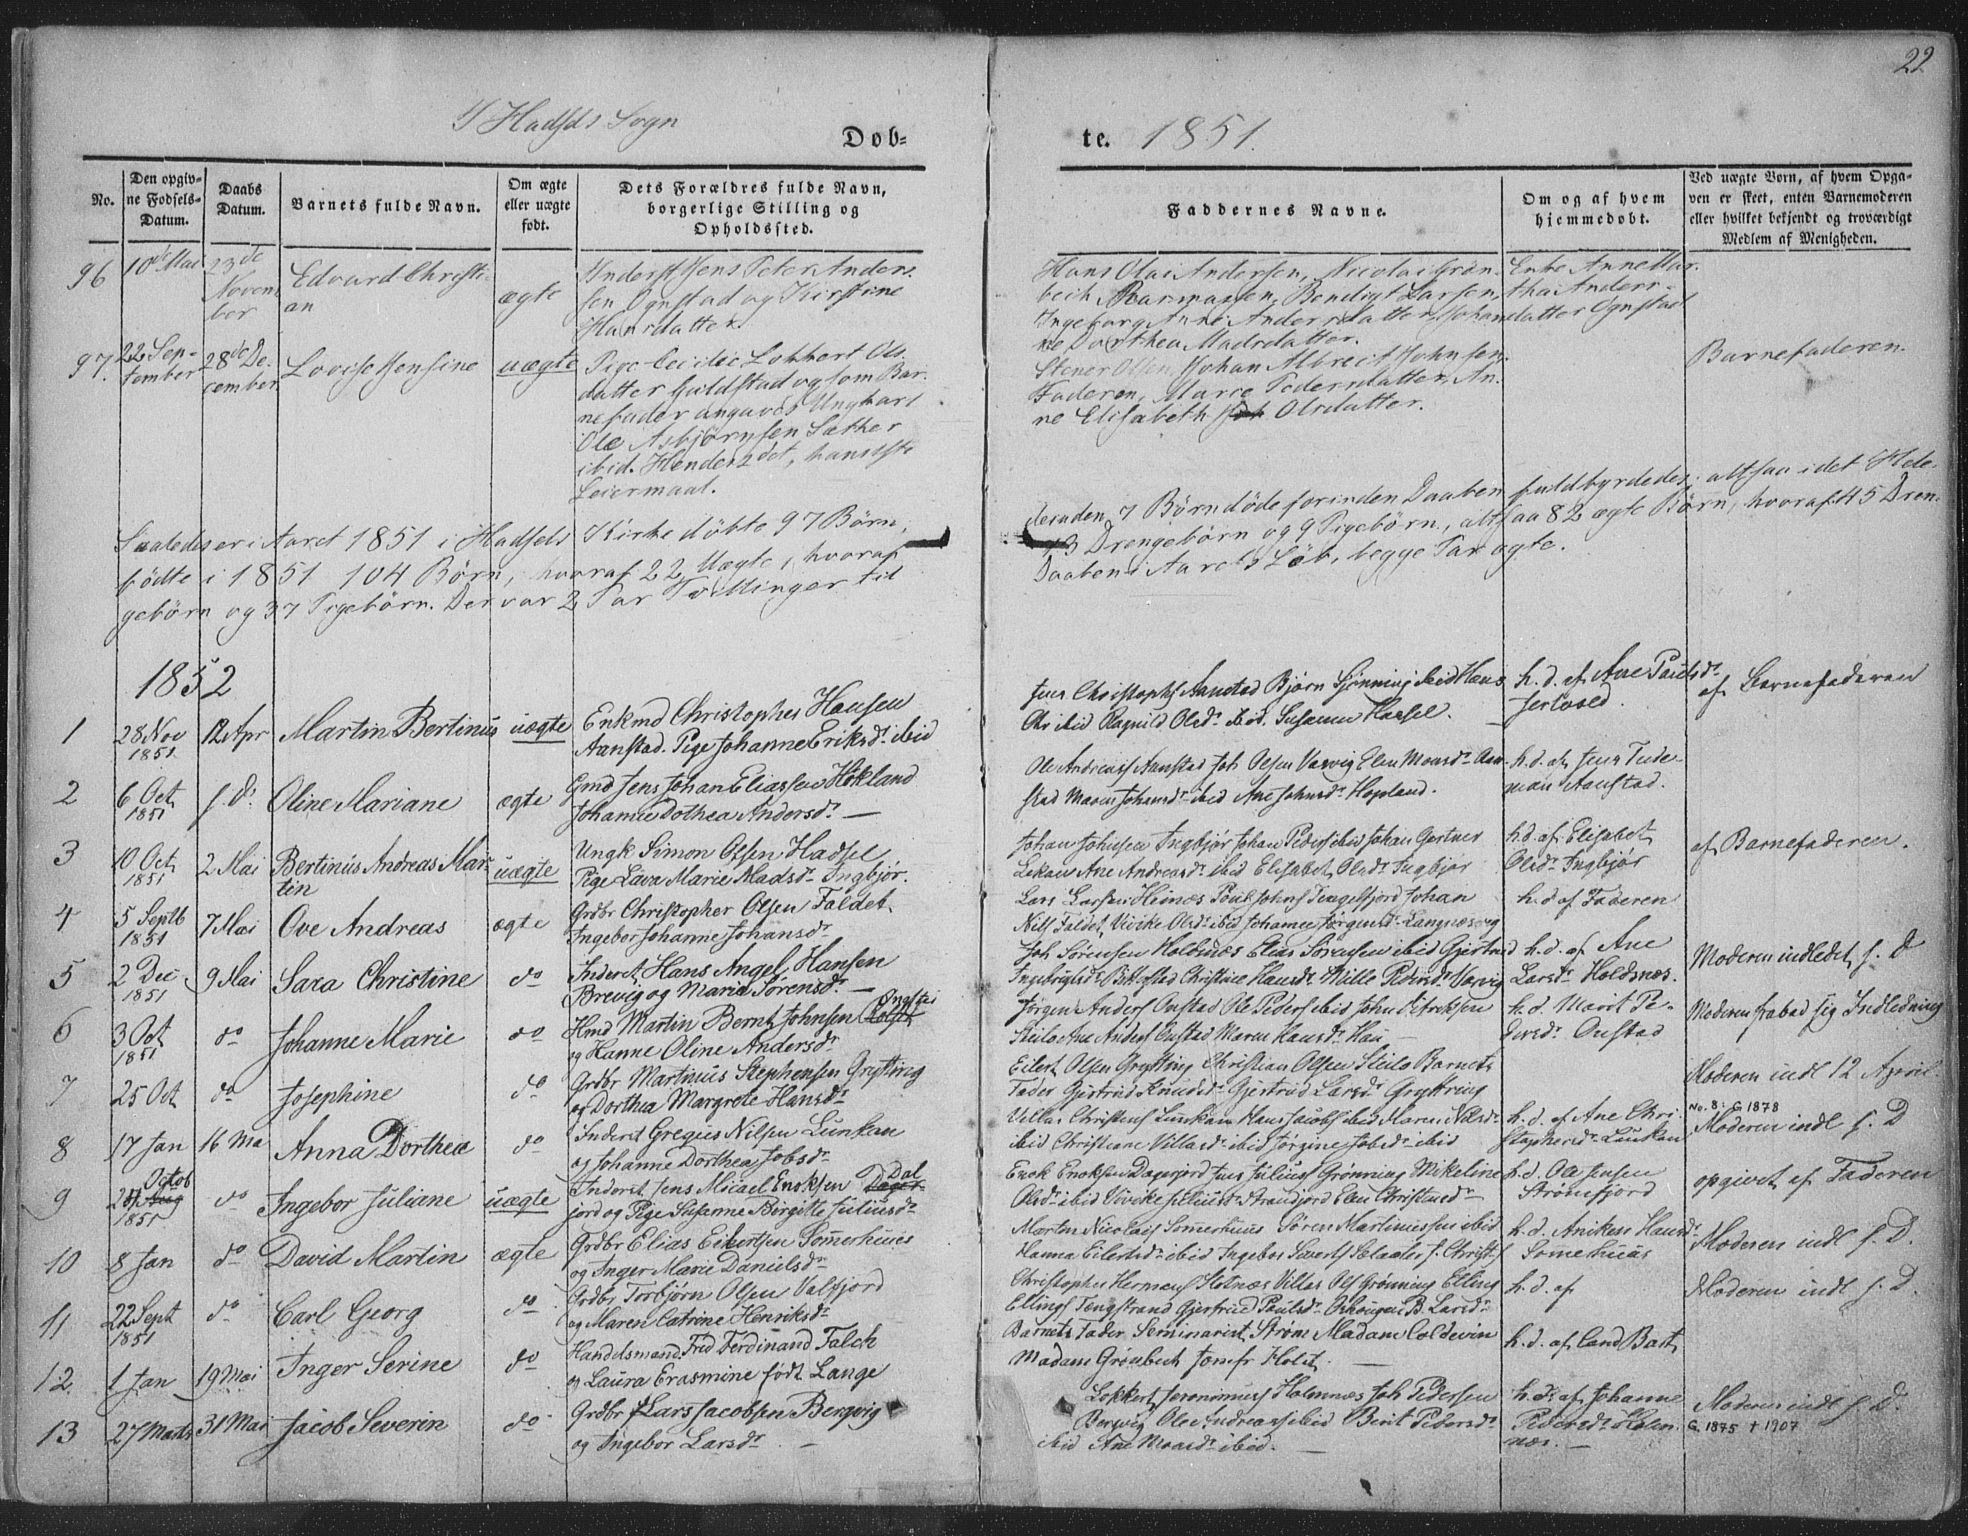 22
I Hadsels Sogn
Døb-
te. 1851.
No.
Den opgiv-
ne Fødsels-
Datum.
Daabs
Datum.
Barnets fulde Navn.
Om ægte
eller uægte
født.
Dets Forældres fulde Navn,
borgerlige Stilling og
Opholdssted.
Faddernes Navne.
Om og af hvem
hjemmedøbt.
Ved uægte Børn, af hvem Opga-
ven er skeet, enten Barnemoderen
eller hvilket bekjendt og troværdigt
Medlem af Menigheden.
96
10de Mai
23de
Novem
ber
Edvard Christi-
an
ægte
Inderst Jens Peter Ander-
sen Ognstad og Kirstine
Hansdatter.
Hans Olai Andersen, Nicolai Grøn-
bech Rasmussen, Bendigt Larsen,
Ingeborg Anne Andersdatter, Johan-
ne Dorthea Madsdatter.
Enke Anne Mar-
tha Anders-
datter Ognstad
97.
22 Sep-
tember
28de De-
cember
Lovise Hensine
uægte
Pige Cecilie Lokkert Ols-
datter Guldstad og som Bar-
nefader angaves Ungkarl
Ole Asbjørnsen Sæther
ibid. Hendes 2det, hans 1ste
Leiermaal.
Stener Olsen, Johan Albrect Johnsen,
Faderen, Marre Pedersdatter, An-
ne Elisabeth Olsdatter.
Barnefaderen.
Saaledes er i Aaret 1851 i Hadsels Kirke døbte 97 Børn,
desuden 7 Børn døde forinden Daaben fuldbyrdedes, altsaa i det Hele
fødte i 1851 104 Børn, hvoraf 22 Uægte, hvoraf
13 Drengebørn og 9 Pigebørn, altsaa 82 ægte Børn, hvoraf 45 Dren-
gebørn og 37 Pigebørn. Der var 2 Par Tvillinger til
Daaben i Aarets Løb, begge Par ægte.
1852
1
28 Nov
1851
12 Apr
Martin Bertinus
uægte
Enkmd Christopher Hansen
Aanstad. Pige Johanne Eriksdr ibid
Jens Christophs Aanstad Bjørn Sjønning ibid Hans
Ols ibid Ragnild Olsdr ibid. Susanna Hassel.
h. d. af Ane Paulsdr
af Barnefaderen
2
6 Oct
1851
s. D.
Oline Mariane
ægte
Gmd Jens Johan Eliassen Hokland
Johanne Dothea Andersdr —
Ole Andreas Aanstad Joh Olsen Vasvig Elen Monsdr Aan-
stad Maren Johansdr ibid Ane Johnsdr Hopland.
h. d. af Jens Tude-
man Aanstad.
3
10 Oct
1851
2 Mai
Bertinus Andreas Mar-
tin
uægte
Ungk Simon Olsen Hadsel
Pige Lava Marie Madsdr Ingbjør.
Johan Johnsen Ingbjør Johan Peders ibid Johan Gertner
Lekan Ane Andreasdr ibid Elisabet Olsdr Ingbjør
h. d. af Elisabet
Olsdr Ingbjør
af Barnefaderen.
4
5 Septb
1851
7 Mai
Ove Andreas
ægte
Grdbr Christopher Olsen Faldet.
Ingebor Johanne Johansdr
Lars Larsen Heinæs Poul Johns Tengelfjord Johan
Nils Faldet, Vivike Olsdr ibid Johanne Jørgensdr Langnæsvig
h. d. af Faderen
5
2 Dec
1851
9 Mai
Sara Christine
do
Inderst Hans Angel Hansen
Brevig og Maria Sørensdr —
Joh Sørensen Holdnæs Elias Sørensen ibid Gjertrud
Ingebrigtsdr Bitterstad Christine Hansdr Mille Pedersdr Vasvig
h. d. af Ane
Larsdr Holdnæs.
Moderen indledet s. D
6
3 Oct
1851
do
Johanne Marie
do
Hmd Martin Bernt Johnsen
og Hanne Oline Andersdr
Jørgen Anders Onstad Ole Peders ibid John Henriksen
Steilo Ane Anders Onstad Maren Hansdr Hau —
h. d. Marit Pe-
dersdr Onstad
Moderen frabad sig Indledning
7
25 Oct
do
Josephine
do
Grdbr Martinus Stephensen Grytting
og Dorthea Margrete Hansdr
Eilert Olsen Grytting Christian Olsen Steilo Barnets
Fader Gjertrud Knudsdr Gjertrud Larsdr Grytting
Moderen indl 12 April
8
17 Jan
16 Ma
Anna Dorthea
do
Inderst Gregus Nilsen Lunkan
og Johanne Dorthea Jobsdr
Villas Christens Lunkan Hans Jacobs ibid Maren Nilsdr
ibid Christiane Villasdr ibid Jørgine Jobsdr ibid
h. d. af Ane Chri-
stophersdr Lunkan
No. 8: G 1878
Moderen indl s. D
9
Octob
1851
do
Ingebor Juliane
uægte
Inderst Jens Micael Enoksen Dal
fjord og Pige Susanne Birgitte Juliusdr
Enok Enoksen Dagerfjord Jens Julius Grønning Mikeline
Olsdr ibid Vivike Juliusdr Strandjord Elen Christensdr —
h. d. Ole Jensen
Strømfjord
opgivet af Faderen
10
8 Jan
do
David Martin
ægte
Grdbr Elias Eilertsen Sommerhuus
og Inger Marie Danielsdr
Morten Nicolais Somerhuus Søren Martinussen ibid
Hanna Eilertsdr ibid
h. d. Aniken Hansdr
Somerhuus
Moderen indl s. D.
11
22 Sept
1851
do
Carl Georg
do
Grdbr Torbjørn Olsen Valfjord
og Maren Catrine Henriksdr
Christopher Hermans Holnæs Villas Ols Grønning Elling
Ellings Tengstrand Gjertrud Paulsdr B. Larsdr
h. d. af
Moderen indl s. D.
12
1 Jan
19 Mai
Inger Serine
do
Handelsmand Frid Ferdinand Falck
og Laura Erasmine født Lange
Barnets Fader, Seminarist Strøm Madam Coldevin
Madam Grønbech Jomfr Holst. —
h. d. af Cand Bast
13
27 Marts
31 Mai
Jacob Severin
do
Grdbr Lars Jacobsen Bergvig
og Ingebor Larsdr —
Lokkert Jeronimus Holmnæs Joh Pedersen
Bervig Ole Andreas ibid Berit Pedersdr
ibid Ane Monsdr ibid. —
h. d. af Johanne
Pedersdr Holm-
næs. —
Moderen indl s. D.
G. 1875 † 1907